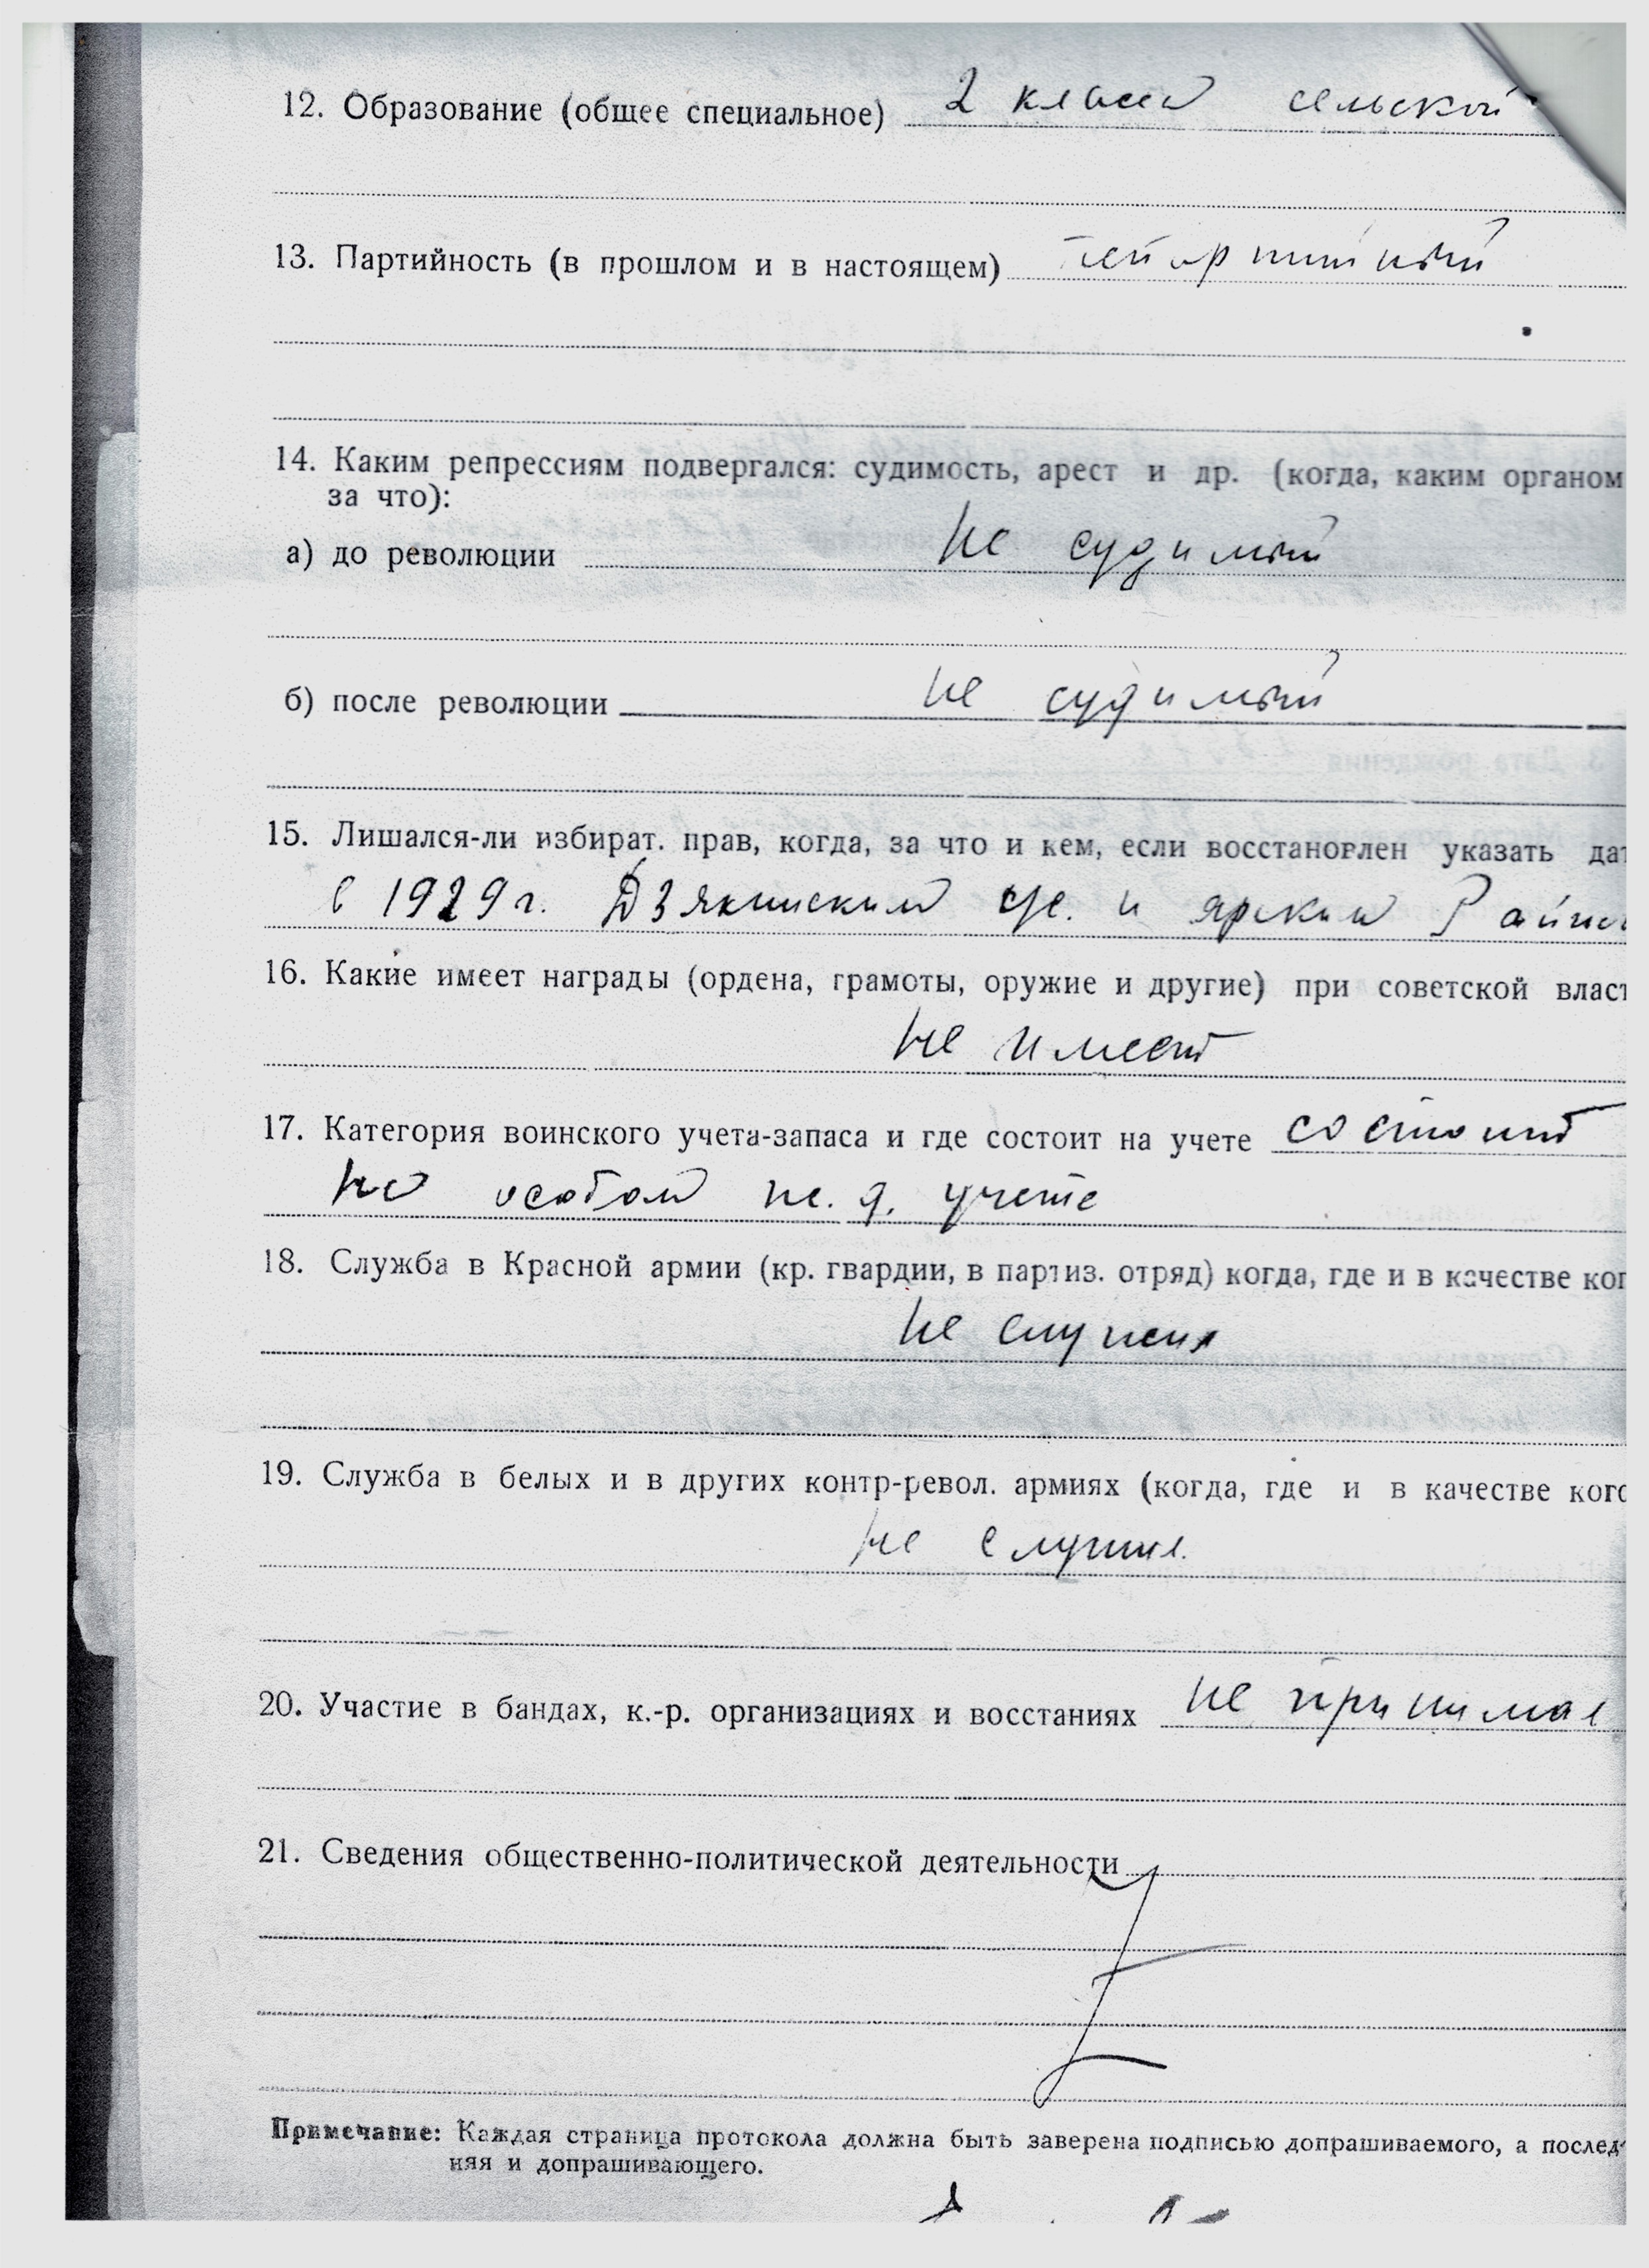 12. Образование (общее специальное) 2 класса сельской
13. Партийность (в прошлом и в настоящем) беспартийный
14. Каким репрессиям подвергался: судимость, арест и др. (когда, каким органом
за что):
а) до революции не судимый
б) после революции не судимый
15. Лишался-ли избират. прав, когда, за что и кем, если восстановлен указать дат
в 1929 г. Дзякинским с/с. и ярским Райис
16. Какие имеет награды (ордена, грамоты, оружие и другие) при советской власт
не имеет
17. Категория воинского учета-запаса и где состоит на учете состоит
на особом учете
18. Служба в Красной армии (кр. гвардии, в партиз. отряд) когда, где и в качестве ког
не служил
19. Служба в белых и в других контр-револ. армиях (когда, где и в качестве кого
не служил.
20. Участие в бандах, к.-р. организациях и восстаниях не принимал
21. Сведения общественно-политической деятельности
Примечание: Каждая страница протокола должна быть заверена подписью допрашиваемого, а послед-
няя и допрашивающего.